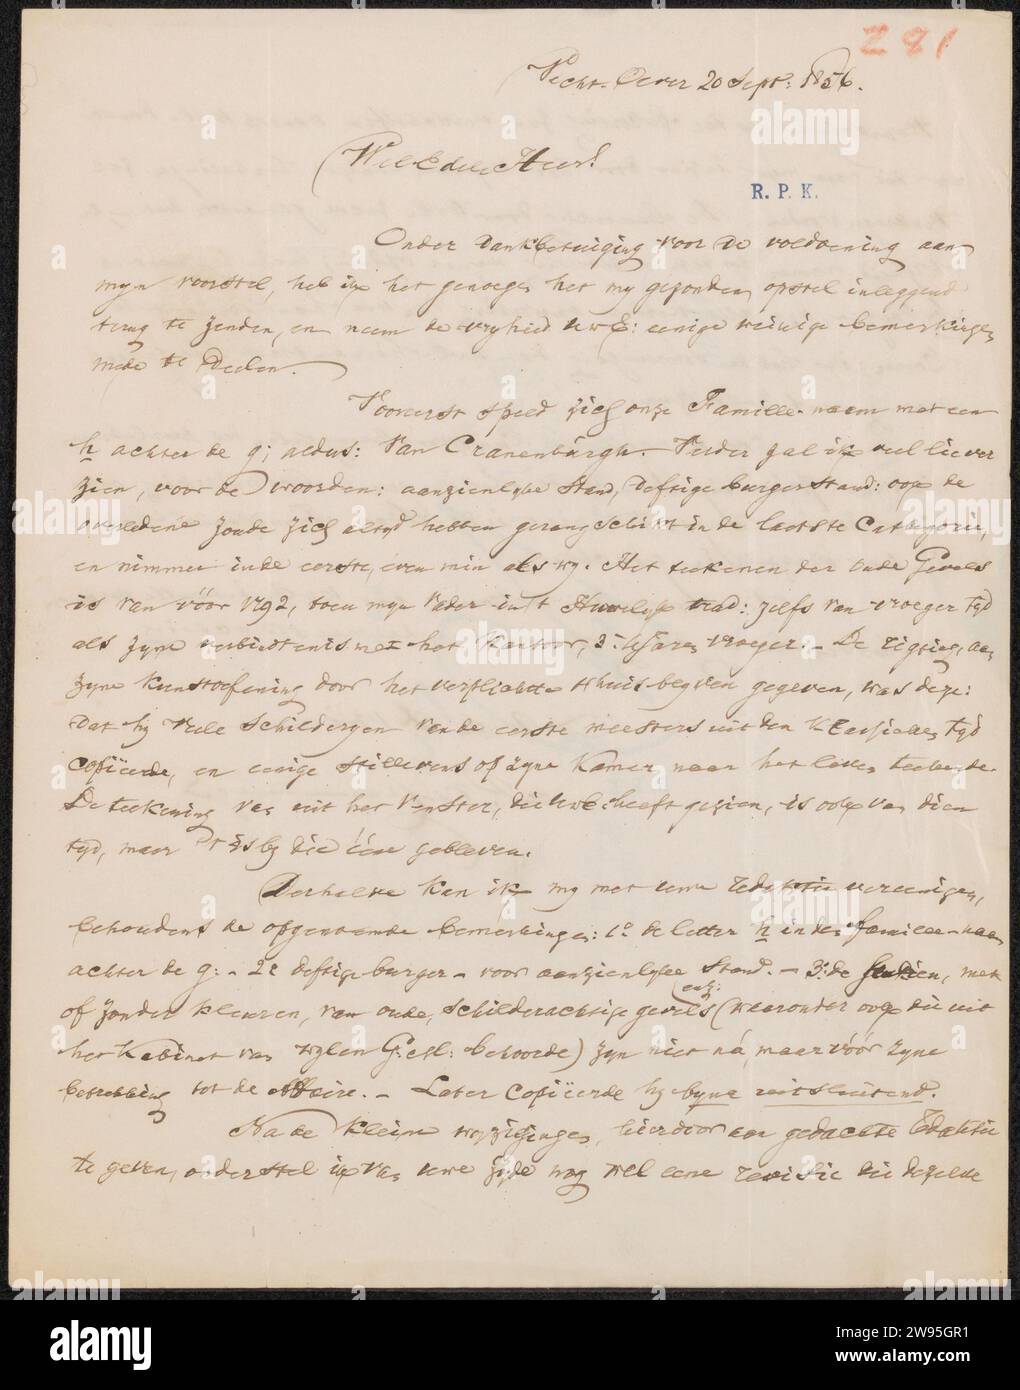 291
Vecht-Oever 20 Sept: 1856.
WelEdele Heer!
R. P. K.
Onder dankbetuiging voor de voldoening aan
myn voorstel, heb ik het genoegen het my gezonden opstel inleggend
terug te zenden, en neem de vryheid UwE: eenige weinige bemerkingen
mede te deelen.
Voorerst speld zich onze Famille-naam met een
h achter de g; aldus: Van Cranenburgh. Verder zal ik veel liever
zien, voor de woorden: aanzienlyke Stand, deftige burger Stand: ook de
overledene zoude zich altyd hebben gerangschikt in de laatste Categorie,
en nimmer in de eerste, even min als wy. Het teekenen der oude Gevels
is van vóór 1792, toen myn Vader in 't Huwelyk trad: zelfs van vroeger tyd
als zyne verbindtenis met het Kantoor, vroeger. - De rigting, aan
zyne kunstoefening door het verplichte thuisblyven gegeven, was deze:
Dat hy vele Schilderyen van de eerste meesters uit den Klassieken tyd
copiëerde, en eenige stillevens op zyne Kamer naar het leven teekende.
De teekening van uit het Venster, die UwE: heeft gezien, is ook van dien
tyd, maar 't is by die ééne gebleven.
Derhalve kan ik my met uwe redaktie vereenigen,
behoudens de opgenoemde bemerkingen: 1o de letter h in de familie-naam
achter de g: - 2e deftige burger - voor aanzienlyke Stand. - 3: de studien, met
of zonder kleuren, van oude, schilderachtige gevels (waaronder ook die uit
enz:
het Kabinet van wylen Gesl: behoorde) zyn niet ná, maar vóór zyne
betrekking tot de Affaire. - Later copiëerde hy byna uitsluitend.
Na de kleine wyzigingen, hierdoor aan gedachte Redaktie
te geven, onderstel ik van uwe zyde nog wel eene revisie die dezelde